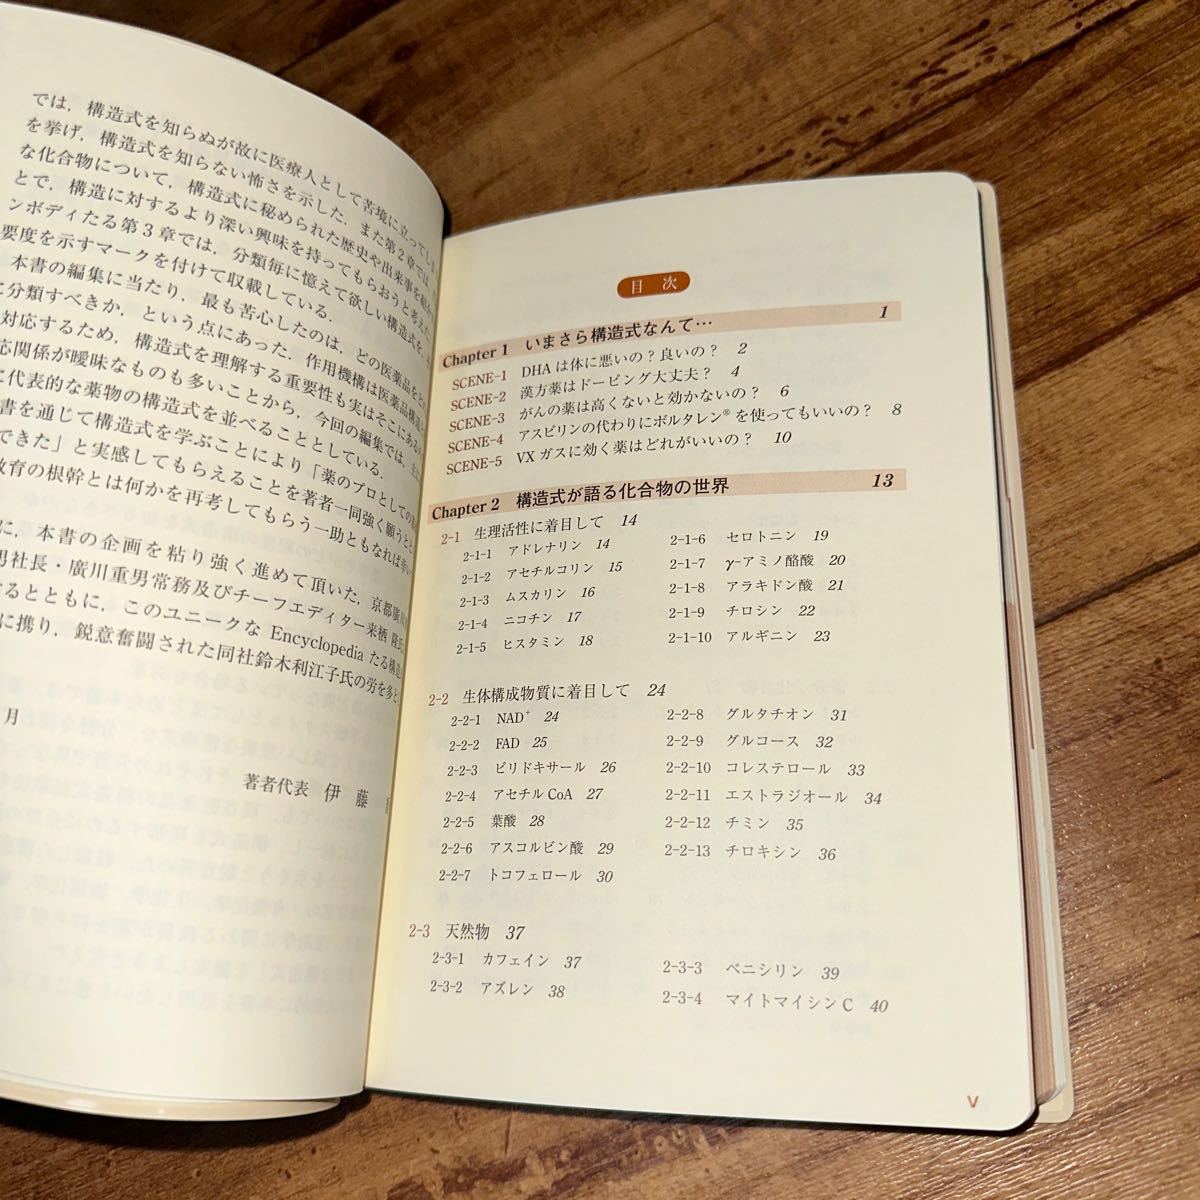 では，構造式を知らぬが故に医療人として苦境に立ってしま
を挙げ，構造式を知らない怖さを示した．また第2章では，
な化合物について，構造式に秘められた歴史や出来事を
とで，構造に対するより深い興味を持ってもらおうと考えた
ンボディたる第3章では，分類毎に憶えて欲しい構造式を，
要度を示すマークを付けて収載している．
本書の編集に当たり，最も苦心したのは，どの医薬品をどの
に分類すべきか，という点にあった．作用機構は医薬品構造と
対応するため，構造式を理解する重要性も実はそこにあるの
応関係が曖昧なものも多いことから，今回の編集では，
に代表的な薬物の構造式を並べることとしている．
書を通じて構造式を学ぶことにより「薬のプロとしての
できた」と実感してもらえることを著者一同強く願うとと
教育の根幹とは何かを再考してもらう一助ともなれば幸い
に，本書の企画を粘り強く進めて頂いた，京都廣川
男社長・廣川重男常務及びチーフエディター来栖 隆氏
するとともに，このユニークな Encyclopedia たる構造
に携り，鋭意奮闘された同社鈴木利江子氏の労を多と
月
著者代表 伊藤
目次
Chapter 1 いまさら構造式なんて… 1
SCENE-1 DHAは体に悪いの？良いの？ 2
SCENE-2 漢方薬はドーピング大丈夫？ 4
SCENE-3 がんの薬は高くないと効かないの？ 6
SCENE-4 アスピリンの代わりにボルタレン®を使ってもいいの？ 8
SCENE-5 VXガスに効く薬はどれがいいの？ 10
Chapter 2 構造式が語る化合物の世界 13
2-1 生理活性に着目して 14
2-1-1 アドレナリン 14
2-1-2 アセチルコリン 15
2-1-3 ムスカリン 16
2-1-4 ニコチン 17
2-1-5 ヒスタミン 18
2-1-6 セロトニン 19
2-1-7 γ-アミノ酪酸 20
2-1-8 アラキドン酸 21
2-1-9 チロシン 22
2-1-10 アルギニン 23
2-2 生体構成物質に着目して 24
2-2-1 NAD⁺ 24
2-2-2 FAD 25
2-2-3 ピリドキサール 26
2-2-4 アセチルCoA 27
2-2-5 葉酸 28
2-2-6 アスコルビン酸 29
2-2-7 トコフェロール 30
2-2-8 グルタチオン 31
2-2-9 グルコース 32
2-2-10 コレステロール 33
2-2-11 エストラジオール 34
2-2-12 チミン 35
2-2-13 チロキシン 36
2-3 天然物 37
2-3-1 カフェイン 37
2-3-2 アズレン 38
2-3-3 ペニシリン 39
2-3-4 マイトマイシンC 40
V